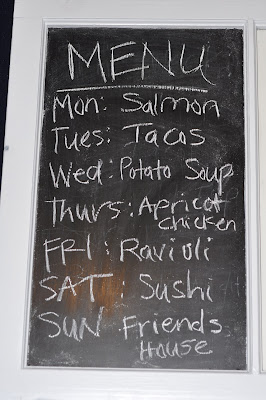 MENU
Mon: Salmon
Tues: Tacos
Wed: Potato Soup
Thurs: Apricot
Chicken
FRI: Ravioli
SAT: Sushi
SUN Friends
House